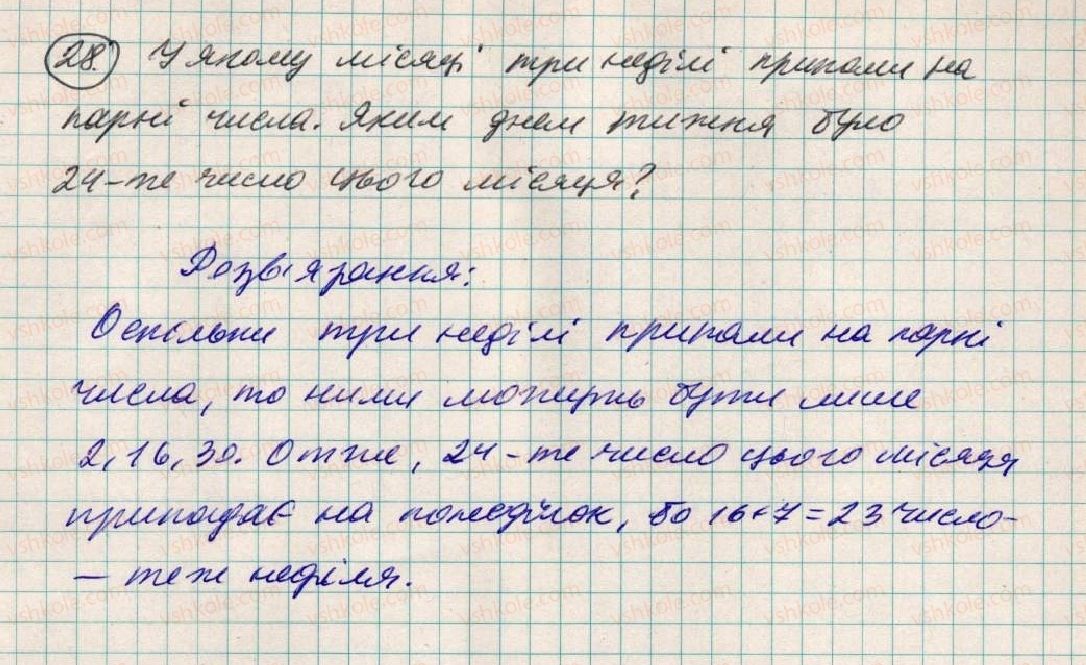 28. У якому місяці три неділі припали на
парні числа. Яким днем тижня було
24-те число цього місяця?
Розв'язання:
Оскільки три неділі припали на парні
числа, то ними можуть бути лише
2, 16, 30. Отже, 24-те число цього місяця
припадає на понеділок, бо 16+7=23 число-
– теж неділя.